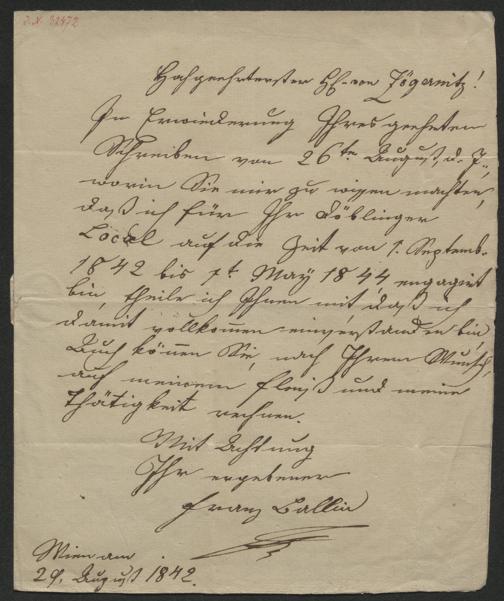 J.N. 32472
Hochgeehrtester H. von Zögernitz!
In Erwiederung Ihres geehrten
Schreiben von 26ten August, d. J.,
worin Sie mir zu wissen machten,
daß ich für Ihr Döblinger
Local auf die Zeit von 1. Septemb.
1842 bis 1t May 1844 engagirt
bin, theile ich Ihnen mit, daß ich
damit vollkommen einverstanden bin,
Auch können Sie, nach Ihrem Wunsch,
auf meinem Fleiß und meine
Thätigkeit rechnen.
Mit Achtung
Ihr ergebener
Franz Ballin
Wien am
29. August 1842.